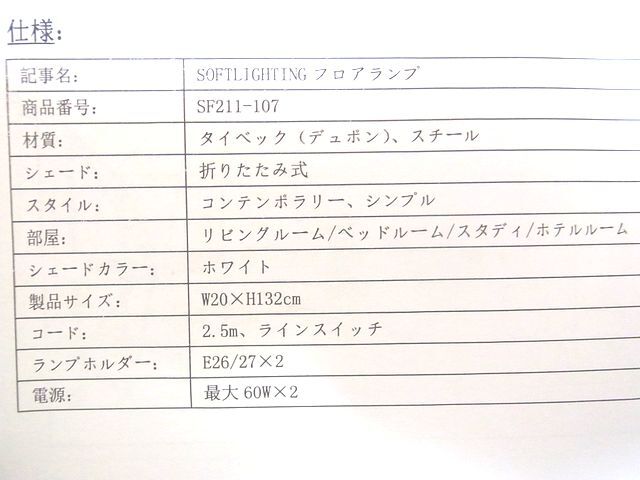 仕様:
記事名: SOFTLIGHTING フロアランプ
商品番号: SF211-107
材質: タイベック（デュポン）、スチール
シェード: 折りたたみ式
スタイル: コンテンポラリー、シンプル
部屋: リビングルーム/ベッドルーム/スタディ/ホテルルーム
シェードカラー: ホワイト
製品サイズ: W20×H132cm
コード: 2.5m、ラインスイッチ
ランプホルダー: E26/27×2
電源: 最大 60W×2